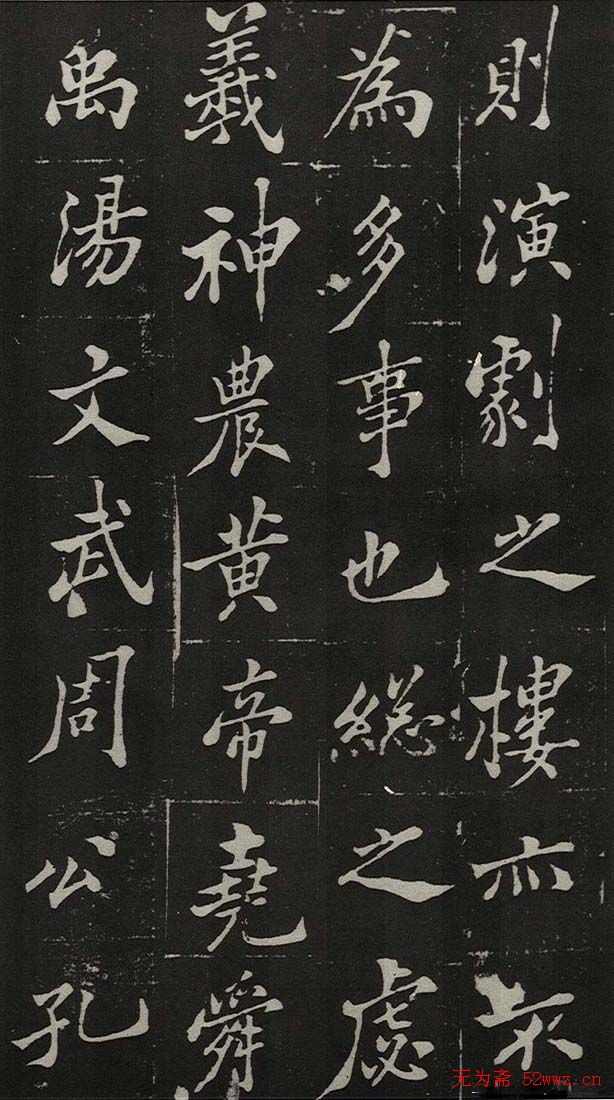 則演劇之樓亦不
為多事也總之虙
羲神農黃帝堯舜
禹湯文武周公孔
无为斋 52wwz.cn